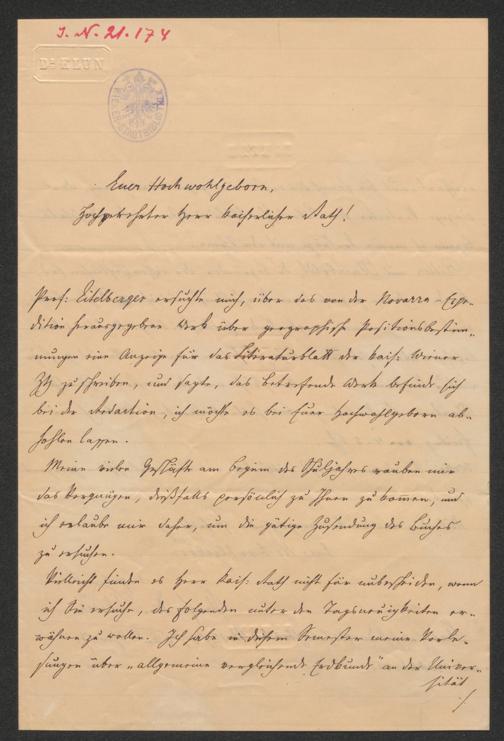 J. N. 21.174
DR KLUN
Euer Hochwohlgeborn,
Hochgeehrter Herr kaiserlicher Rath!
Prof: Eitelberger ersuchte mich, über das von der Novarra-Expe-
dition herausgegebene Werk über geographische Positionsbestim-
mungen eine Anzeige für das Literaturblatt der kais: Wiener
Ztg zu schreiben, und sagte, das betreffende Werk befinde sich
bei der Redaction, ich möchte es bei Euer Hochwohlgeborn ab-
holen lassen.
Meine vielen Geschäfte am Beginn des Schuljahres rauben mir
das Vergnügen, dießfalls persönlich zu Ihnen zu kommen, und
ich erlaube mir daher, um die gütige Zusendung des Buches
zu ersuchen.
Vielleicht finden es Herr kais: Rath nicht für unbescheiden, wenn
ich Sie ersuche, des folgenden unter den Tagsneuigkeiten er-
wähnen zu wollen. Ich habe in diesem Semester meine Vorle-
sungen über „allgemeine vergleichende Erdkunde" an der Univer-
sität